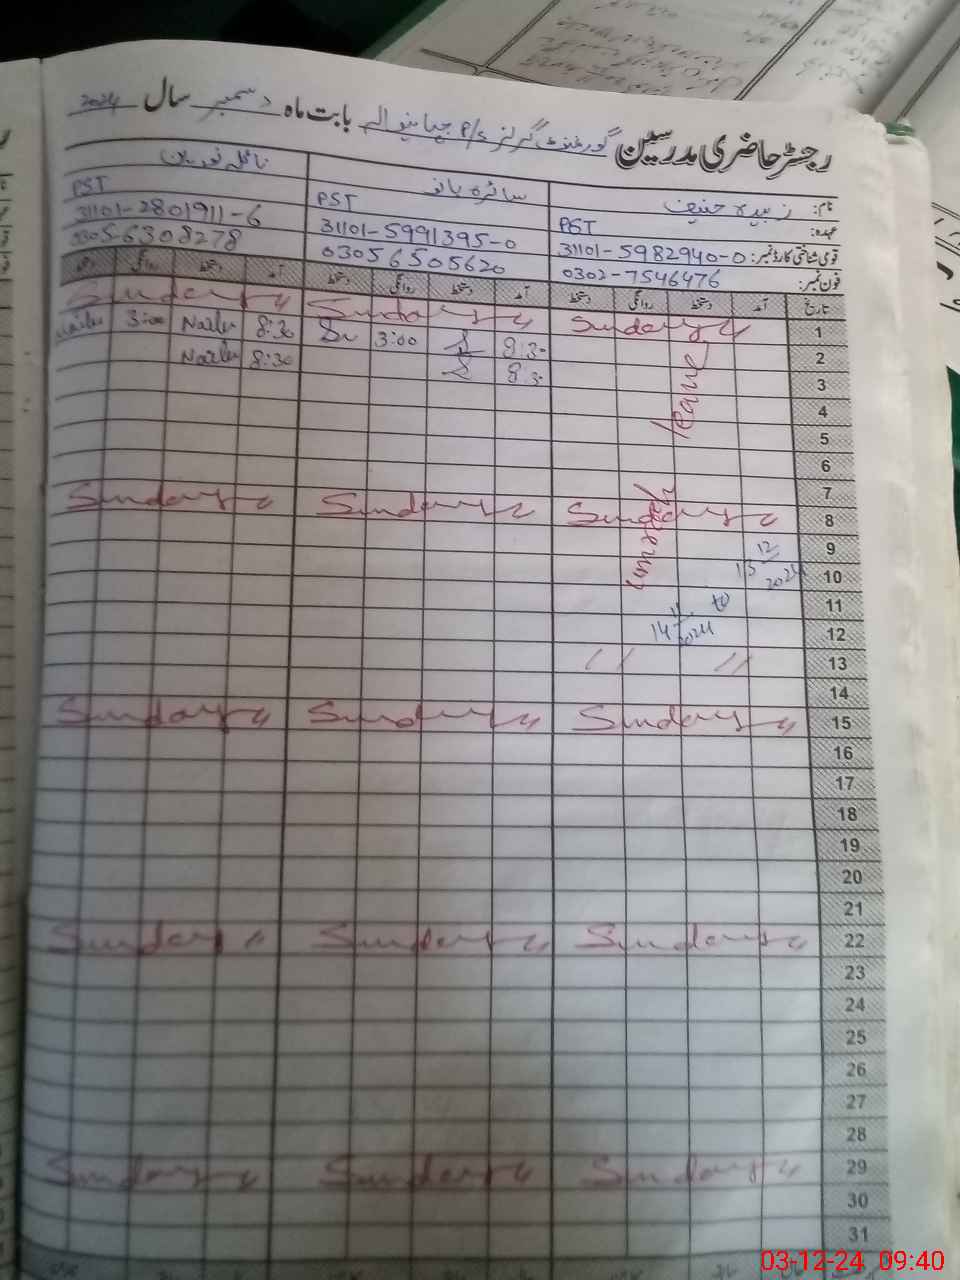 رجسٹر حاضری مدرسین گورنمنٹ گرلز P/S بابت ماہ دسمبر سال 2024
نام: زبیدہ حنیف سائرہ بانو نائلہ نورین
عہدہ: PST PST PST
قومی شناختی کارڈ نمبر: 31101-5982940-0 31101-5991395-0 31101-2801911-6
فون نمبر: 0302-7546476 03056505620 03056308278
تاریخ آمد دستخط روانگی دستخط آمد دستخط روانگی دستخط آمد دستخط روانگی دستخط
1 Sunday Sunday Sunday
2 8:30 3:00 8:30 Naila 3:00 Naila
3 8:30 8:30 Naila
4 leave
5
6
7
8 Sunday Sunday Sunday
9
10
11 to
12
13
14
15 Sunday Sunday Sunday
16
17
18
19
20
21
22 Sunday Sunday Sunday
23
24
25
26
27
28
29 Sunday Sunday Sunday
30
31
03-12-24 09:40